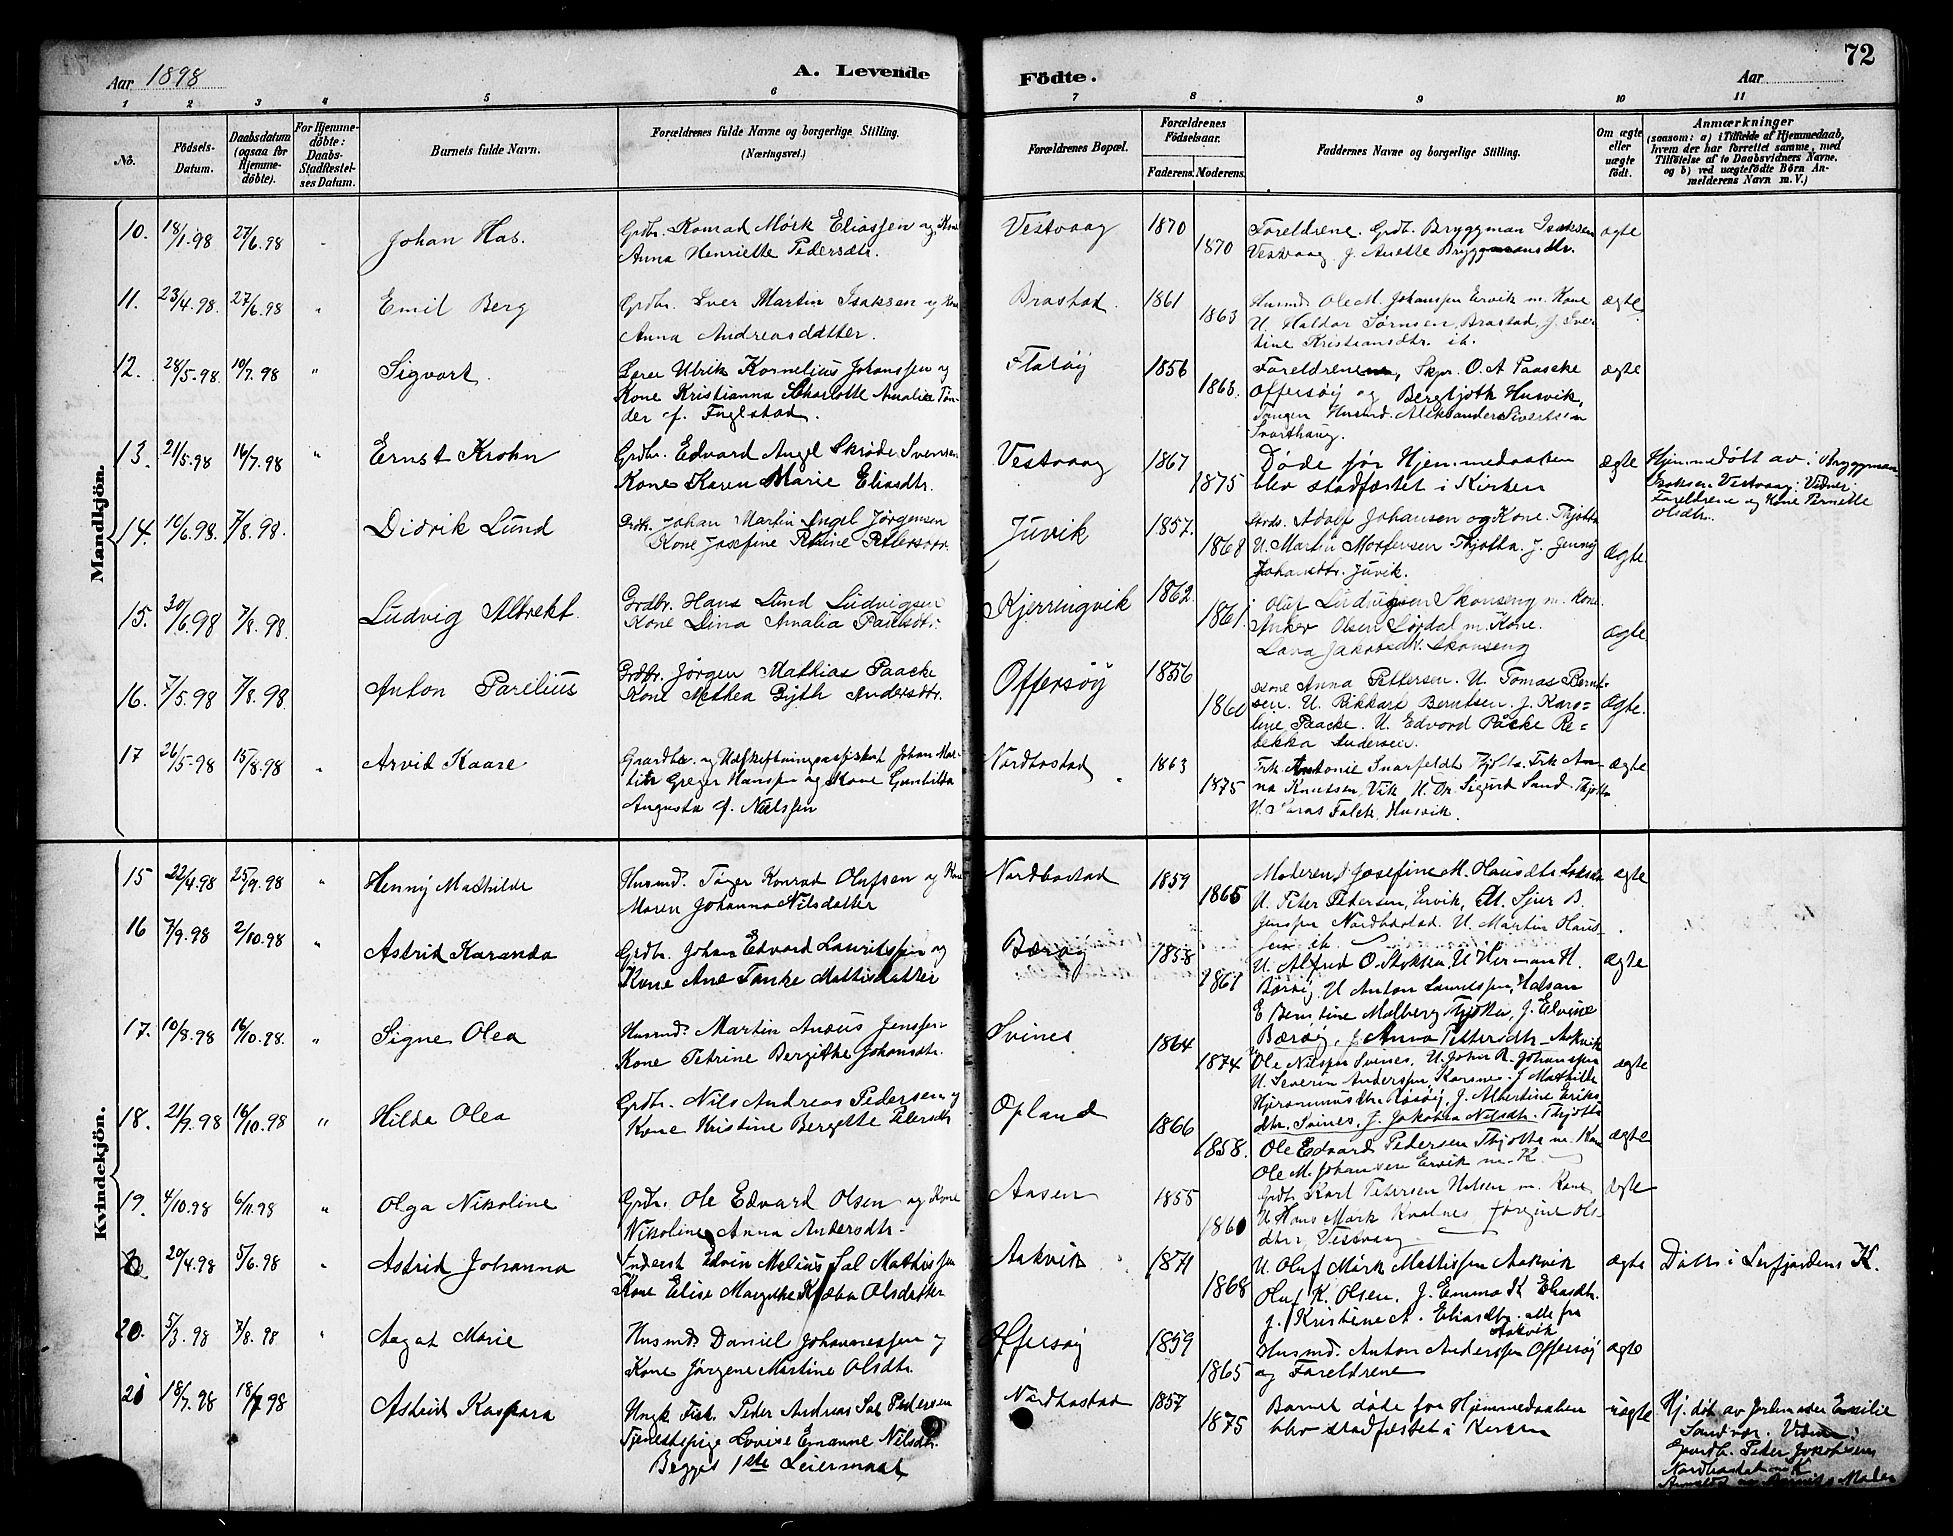 72
Aar 1898
A. Levende
Födte.
Aar
1 2 3 4 5 6 7 8 9 10 11
No.
Födsels-Datum.
Daabsdatum (ogsaa for Hjemme-döbte).
For Hjemme-döbte: Daabs-Stadfestel-ses Datum.
Barnets fulde Navn.
Forældrenes fulde Navne og borgerlige Stilling.
(Næringsvei.)
Forældrenes Bopæl.
Forældrenes Födselsaar.
Faderens. Moderens.
Faddernes Navne og borgerlige Stilling.
Om ægte eller uægte födt.
Anmærkninger
(saasom: a) i Tilfælde af Hjemmedaab, hvem der har forrettet samme, med Tilföielse af to Daabsvidners Navne, og b) ved uægtefödte Börn An-melderens Navn m. V.)
Mandkjön.
10. 18/1.98 27/6.98 Johan Has.
Grdbr. Konrad Mørk Eliassen og Kone
Anna Henriette Pedersdtr.
Vestvaag 1870 1870
Foreldrene. Grdb. Bryggman Isaksen
Vestvaag. J. Anette Bryggmansdtr.
ægte
11. 23/4.98. 27/6.98 " Emil Berg
Grdbr. Iver Martin Isaksen og Kone
Anna Andreasdatter.
Brastad. 1861 1863
Husmd. Ole M. Johanssen Ervik m. Kone
U. Haldor Tørnsen, Brastad, J. Iver
tine Kristiansdtr. ib.
ægte
12. 28/5.98. 10/7.98 " Sigvart.
Lærer Ulrik Kornelius Johanssen og
Kone Kristianna Scharlotte Amalie Tøn-
der f. Englstad.
Flatøy 1856 1863.
Foreldrene, Skpr. O. A Paaske
Offersøy og Bergljoth Husvik,
Tangen Husmd. Aleksander Sivertsen
Svarthaug.
ægte
13. 21/5.98 16/7.98 " Ernst Krohn
Grdbr. Edvard Angel Skrøde Svensen
Kone Karen Marie Eliasdtr.
Vestvaag 1867 1875
Døde før Hjemmedaaben
blev stadfæstet i Kirken
ægte
Hjemmedøbt av: Bryggman
Isaksen Vestvaag: Vidner:
Foreldrene og Kone Pernille
Olsdtr.
14. 10/6.98 7/8.98. Didrik Lund
Grdbr. Johan Martin Angel Jørgensen
Kone Josefine Petrine Petersdtr.
Juvik 1857. 1868
Adolf Johansen og Kone. Thjøtta
U. Martin Mortensen Thjøtta. J. Jenny
Johansdtr. Juvik.
Ægte.
15. 30/6.98 7/8.98. Ludvig Albrekt.
Grdbr. Hans Lund Ludvigsen
Kone Dina Amalia Paulsdtr.
Kjerringvik 1862. 1861.
Oluf Ludvigsen Skonseng m. Kone.
Anker Olsen Lørdal m. Kone.
Lana Jakobsdtr. Skonseng
ægte
16. 7/5.98 7/8.98. Anton Parelius
Grdbr. Jørgen Mathias Paacke
Kone Methea Gyth Andersdtr.
Offersøy 1856 1860
Kone Anna Pettersen. U Tomas Bernt-
sen. U. Rikkart Berntsen. J. Karo-
line Paacke. U. Edvard Packe Re-
bekka Andersen.
Ægte.
17 26/5-98 15/8-98 " Arvid Kaare
Gaardbr. og Udskiftningsassistent Johan Mar-
tin Greger Hanssen og Kone Gunhilda
Augusta f. Nilssen
Nordbostad 1863 1875
Frk. Antonie Snarfeldt Thjøtta. Frk An-
na Knutsen, Vik, U. Dr. Sigurd Sand Thjøtta
U. Falck, Husvik.
ægte
Kvindekjön.
15 22/4.98 25/9.98 " Henny Mathilde
Husmd. Tøger Konrad Olufsen og Kone
Maren Johanna Nilsdatter
Nordbostad 1859 1865
Moderen J Josefine M. Hansdtr
U. Peter Petersen, Ervik, Sjur B.
Jenssen Nordbostad U. Martin Hans-
sen ib.
ægte
16 7/9.98 2/10.98 " Astrid Karanda
Grdbr. Johan Edvard Lauritssen og
Kone Ane Tanke Mattisdatter
Bærøy 1858 1861
U. Alfred O. U Herman H.
Bærøy, U Anton
E Berntine Malberg Thjøtta, J. Edvine
Bærøy, J. Anna Pettersdtr. Aakvik
ægte
17. 10/8.98 16/10.98. " Signe Olea
Husmd. Martin Anøus Jenssen
Kone Petrine Bergithe Johansdtr.
Svines 1864 1874
Ole Nilssen Svines, U. John R. Johanssen
U. Severin Anderssen Karsnes. J Mathilde
Røsøy, J. Albertine Eriks
dtr. Svines, J. Jakobea Nilsdtr. Thjøtta
ægte
18. 21/9.98 16/10.98 " Hilda Olea
Grdbr. Nils Andreas Pedersen og
Kone Kristine Bergitte Petersdtr
Opland 1866 1858.
Ole Edvard Pedersen Thjøtta m. Kone
Ole M. Johansen Ervik m. K.
ægte
19. 4/10.98 6/11.98 " Olga Nikoline
Grdbr. Ole Edvard Olsen og Kone
Nikoline Anna Andersdtr.
Aasen 1855 1860
Grdb. Karl Petersen m. Kone
U Hans Mørk Kvalnes Jørgine Ols-
dtr, Vestvaag
ægte
20/4.98 5/6.98 " Astrid Johanna
Inderst Edvin Melius Sal Mathissen
Kone Elise Margrethe Olsdatter
Aakvik 1871 1868
U. Oluf Mørk Mattissen Aakvik
Oluf K. Olsen, J. Emma K Eliasdtr.
J. Kristine A. Eliasdtr. alle fra
Aakvik
ægte
Døbt i Leirfjordens K.
20. 5/3.98 7/8.98 " Aagat Marie
Husmd. Daniel Johannessen og
Kone Jørgene Martine Olsdtr.
Offersøy 1859 1865
Husmd. Anton Anderssen Offersøy
og Foreldrene
ægte
21 18/7.98 18/7 98 Astrid Kaspara
Ungk. Fisk. Peder Andreas Sal Pedersen
Tjenestepige Lovise Emanne Nilsdtr.
Begges 1ste Leiermaal
Nordbostad 1857 1875
Barnet døde før Hjemmedaaben
blev stadfæstet i Kirken
uægte
Hj. døbt av Jordmoder Emilie
Sandvær. Vidner:
Gaardb. Peter Jakobsen
Nordbostad m K